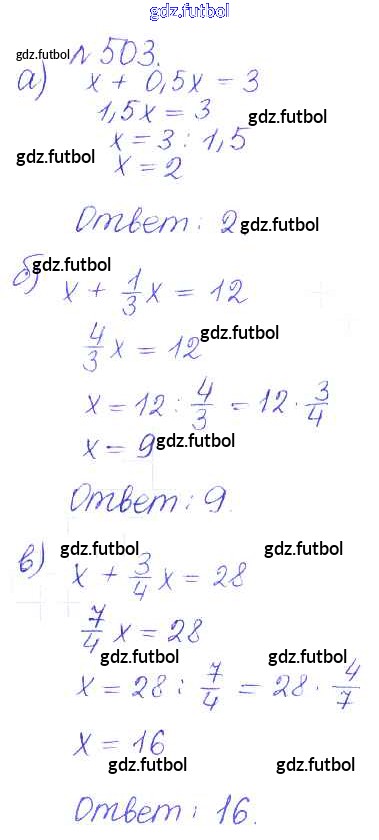 gdz.futbol
№ 503.
gdz.futbol
а) x + 0,5x = 3
1,5x = 3
gdz.futbol
x = 3 : 1,5
gdz.futbol
x = 2
Ответ: 2
gdz.futbol
gdz.futbol
б) x + 1/3 x = 12
gdz.futbol
4/3 x = 12
x = 12 : 4/3 = 12 · 3/4
x = 9
gdz.futbol
Ответ: 9.
gdz.futbol gdz.futbol
в) x + 3/4 x = 28
7/4 x = 28
gdz.futbol gdz.futbol
x = 28 : 7/4 = 28 · 4/7
x = 16
gdz.futbol gdz.futbol
Ответ: 16.